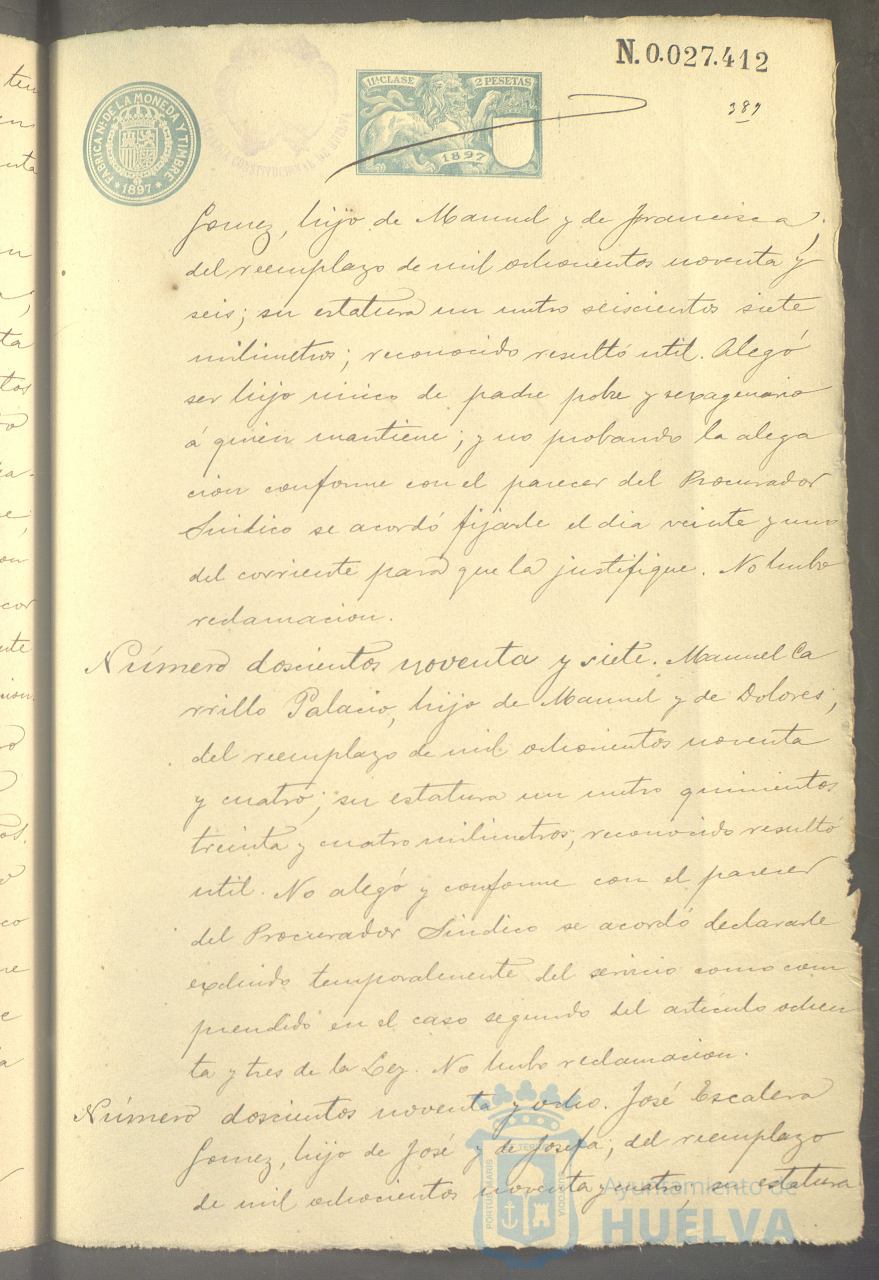 N. 0.027.412
11ª CLASE 2 PESETAS
FABRICA NL. DE LA MONEDA Y TIMBRE
* 1897 *
1897
389
Gomez, hijo de Manuel y de Francisca;
del reemplazo de mil ochocientos noventa y
seis; su estatura un metro seiscientos siete
milimetros; reconocido resultó util. Alegó
ser hijo unico de padre pobre y sexagenario
á quien mantiene; y no probando la alega
cion conforme con el parecer del Procurador
Sindico se acordó fijarle el dia veinte y uno
del corriente para que la justifique. No hubo
reclamacion.
Número doscientos noventa y siete. Manuel Ca
rrillo Palacio, hijo de Manuel y de Dolores;
del reemplazo de mil ochocientos noventa
y cuatro; su estatura un metro quinientos
treinta y cuatro milimetros; reconocido resultó
util. No alegó y conforme con el parecer
del Procurador Sindico se acordó declararle
excluido temporalmente del servicio como com
prendido en el caso segundo del articulo ochen
ta y tres de la Ley. No hubo reclamacion.
Número doscientos noventa y ocho. José Escalera
Gomez, hijo de José y de Josefa; del reemplazo
de mil ochocientos noventa y cuatro, su estatura
PORTUS MARIS
Ayuntamiento de
HUELVA